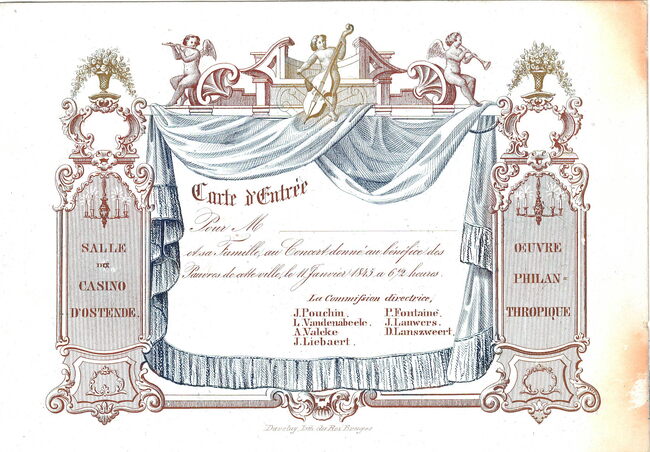 Carte d'Entrée
Pour M
et sa Famille, au Concert donné au bénéfice des
Pauvres de cette ville, le 11 Janvier 1845 a 6½ heures.
La Commission directrice,
J. Pouchin.
L. Vandenabeele.
A. Valcke
J. Liebaert.
P. Fontaine.
J. Lauwers.
D. Lanszweert.
SALLE
DU
CASINO
D'OSTENDE.
ŒUVRE
PHILAN=
THROPIQUE
Daveluy, Lith. du Roi Bruges